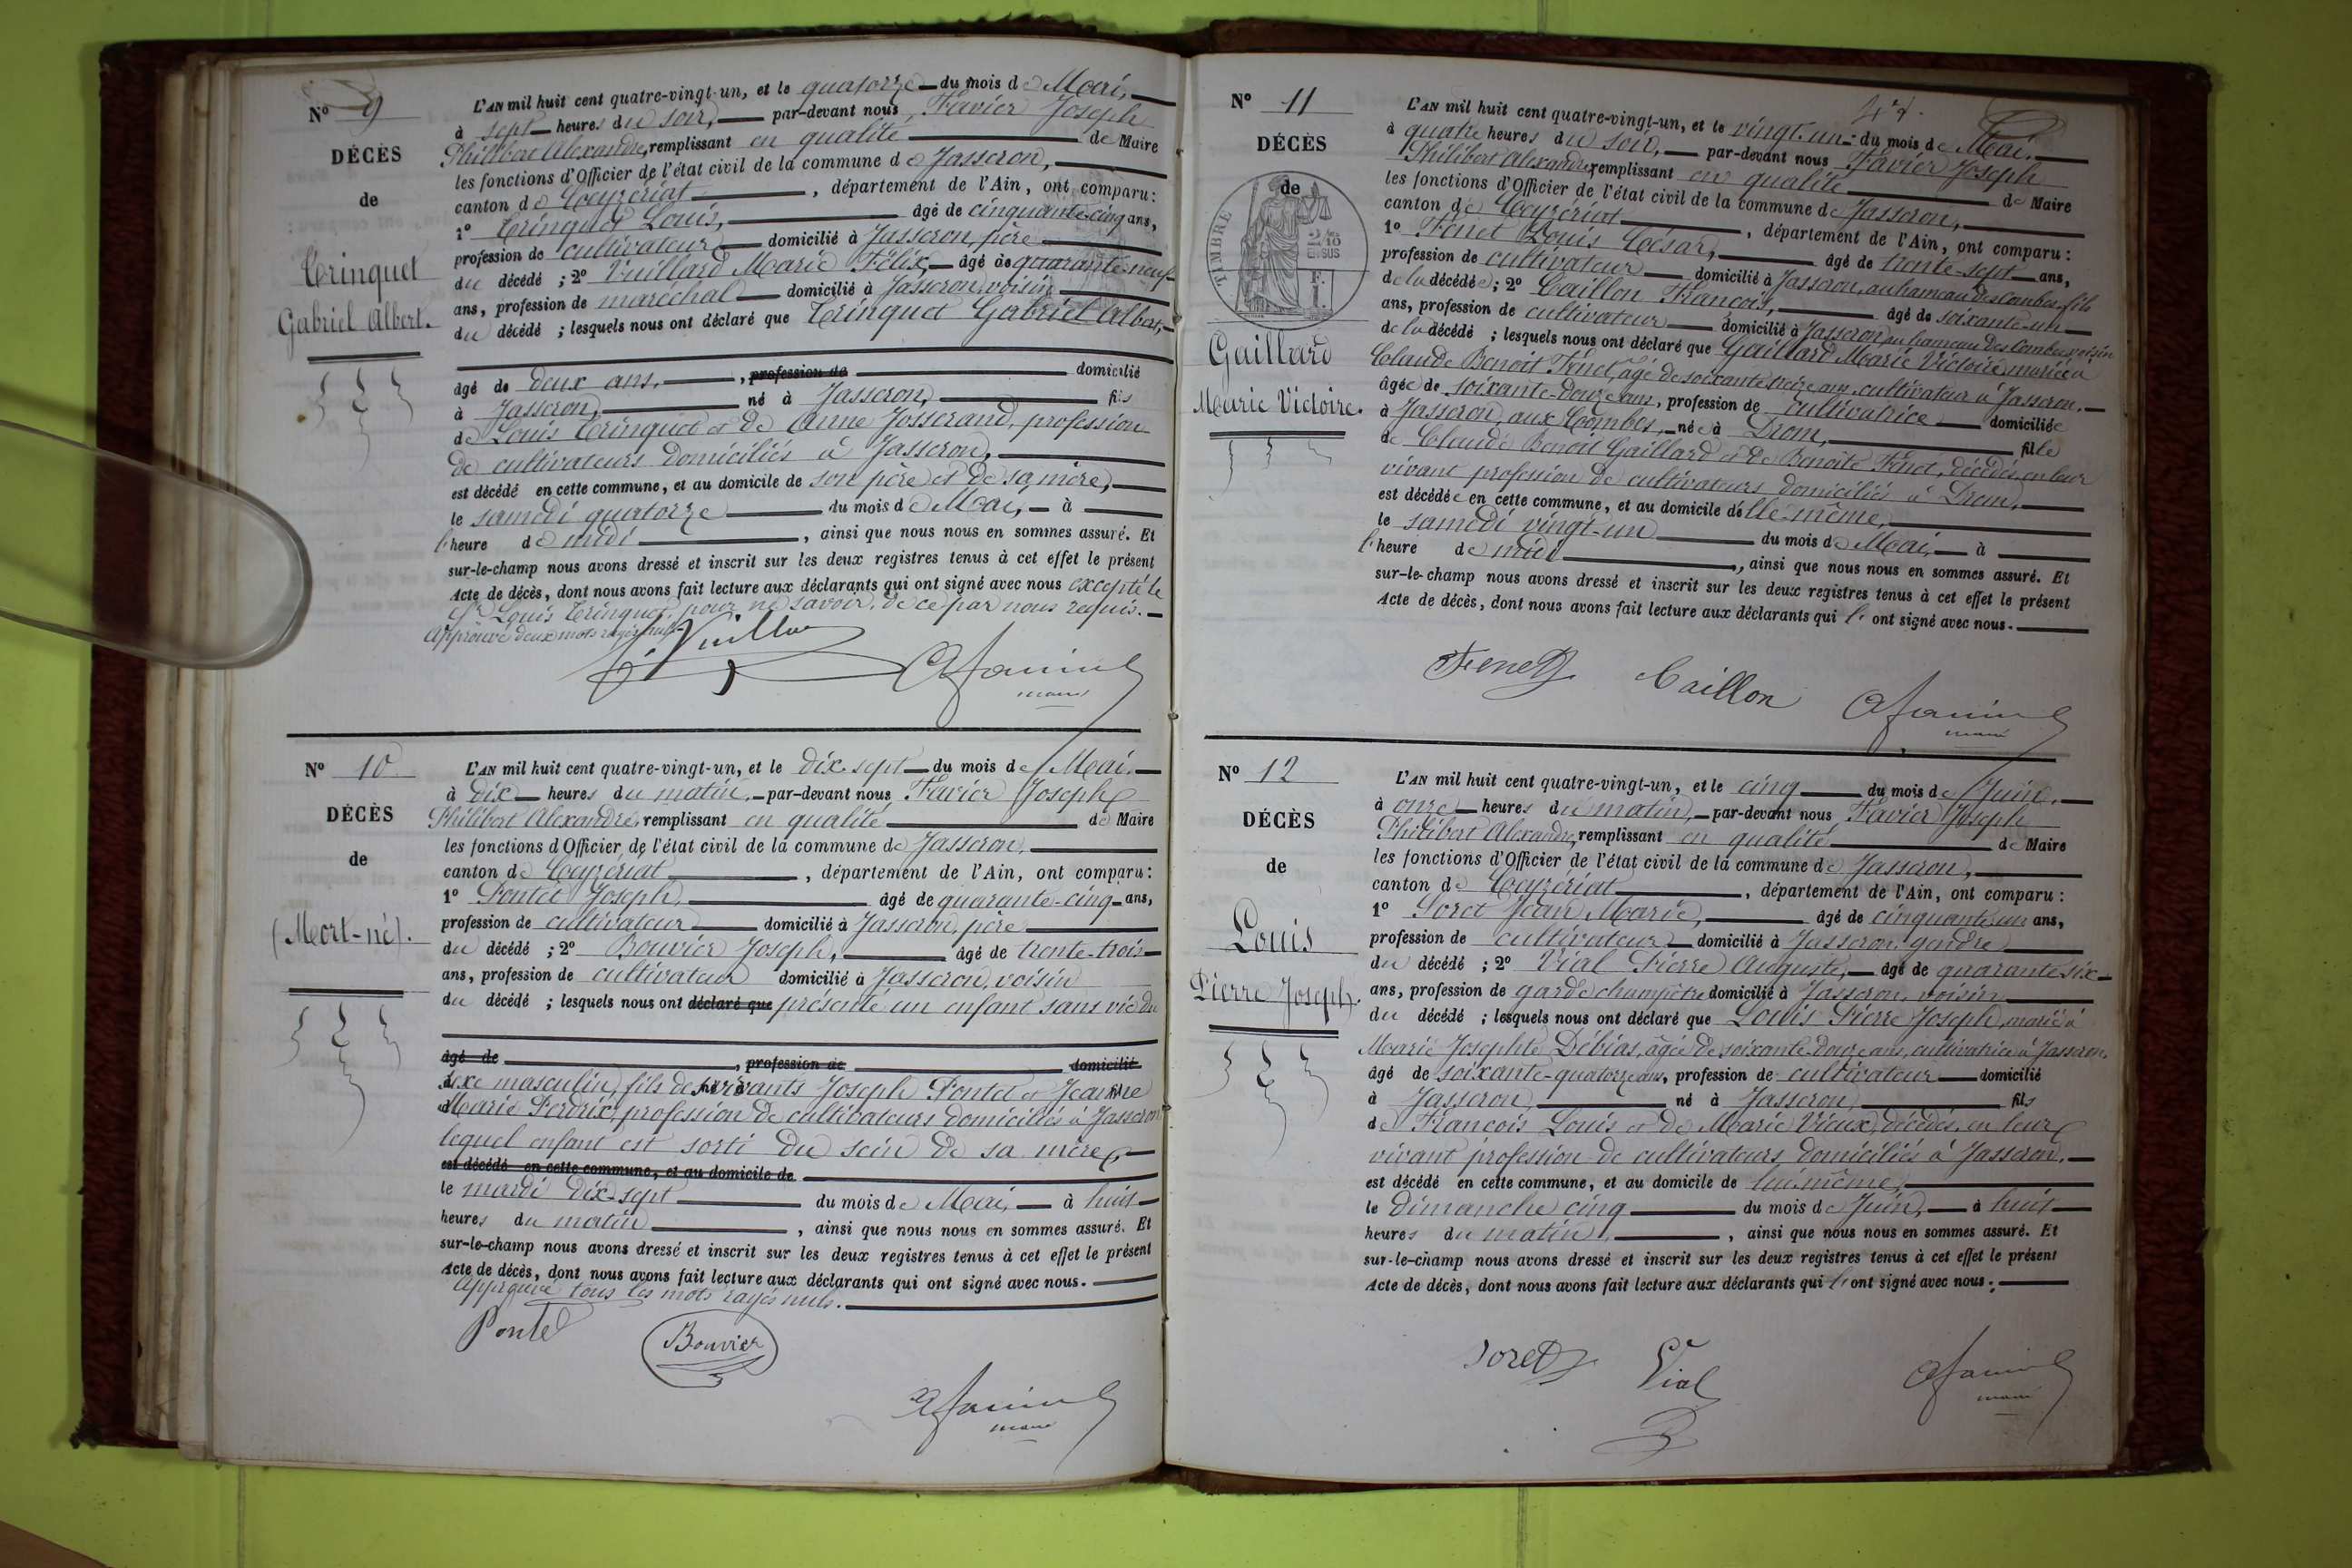 N° 9
DÉCÈS
de
Trinquet
Gabriel Albert.
L'AN mil huit cent quatre-vingt-un, et le quatorze du mois de Mai,
à sept heures du soir, par-devant nous, Favier Joseph
Philibert Alexandre, remplissant en qualité de Maire
les fonctions d'Officier de l'état civil de la commune de Jasseron,
canton de Ceyzériat, département de l'Ain, ont comparu:
1° Trinquet Louis, âgé de cinquante-cinq ans,
profession de cultivateur domicilié à Jasseron, père
du décédé ; 2° Vuillard Marie Félix, âgé de quarante-neuf
ans, profession de maréchal domicilié à Jasseron, voisin
du décédé ; lesquels nous ont déclaré que Trinquet Gabriel Albert,
âgé de deux ans, profession de domicilié
à Jasseron, né à Jasseron, fils
de Louis Trinquet et de Anne Josserand, profession
de cultivateurs domiciliés à Jasseron,
est décédé en cette commune, et au domicile de son père et de sa mère,
le samedi quatorze du mois de Mai, à
l'heure de midi, ainsi que nous nous en sommes assuré. Et
sur-le-champ nous avons dressé et inscrit sur les deux registres tenus à cet effet le présent
Acte de décès, dont nous avons fait lecture aux déclarants qui ont signé avec nous excepté le
Sr Louis Trinquet, pour ne savoir, de ce par nous requis.
Approuvé deux mots rayés nuls.
mair
N° 10
DÉCÈS
de
(Mort-né).
L'AN mil huit cent quatre-vingt-un, et le dix-sept du mois de Mai,
à dix heures du matin, par-devant nous Favier Joseph
Philibert Alexandre, remplissant en qualité de Maire
les fonctions d'Officier de l'état civil de la commune de Jasseron,
canton de Ceyzériat, département de l'Ain, ont comparu:
1° Pontet Joseph, âgé de quarante-cinq ans,
profession de cultivateur domicilié à Jasseron, père
du décédé ; 2° Bouvier Joseph, âgé de trente-trois
ans, profession de cultivateur domicilié à Jasseron, voisin
du décédé ; lesquels nous ont déclaré que présenté un enfant sans vie du
âgé de, profession de domicilié
sexe masculin, fils de vivants Joseph Pontet et Jeanne
Marie Perdrix, profession de cultivateurs domiciliés à Jasseron
lequel enfant est sorti du sein de sa mère
est décédé en cette commune, et au domicile de
le mardi dix-sept du mois de Mai, à huit
heures du matin, ainsi que nous nous en sommes assuré. Et
sur-le-champ nous avons dressé et inscrit sur les deux registres tenus à cet effet le présent
Acte de décès, dont nous avons fait lecture aux déclarants qui ont signé avec nous.
Approuvé tous les mots rayés nuls.
Pontet
Bouvier
maire
N° 11
DÉCÈS
de
TIMBRE
2/10
EN SUS
Gaillard
Marie Victoire.
L'AN mil huit cent quatre-vingt-un, et le vingt-un du mois de Mai,
à quatre heures du soir, par-devant nous Favier Joseph
Philibert Alexandre, remplissant en qualité de Maire
les fonctions d'Officier de l'état civil de la commune de Jasseron,
canton de Ceyzériat, département de l'Ain, ont comparu:
1° Fenet Louis César, âgé de trente-sept ans,
profession de cultivateur domicilié à Jasseron, au hameau des Combes, fils
de la décédée ; 2° Caillon François, âgé de soixante-un
ans, profession de cultivateur domicilié à Jasseron, au hameau des Combes, voisin
de la décédé ; lesquels nous ont déclaré que Gaillard Marie Victoire, mariée à
Claude Benoit Fenet, âgé de soixante treize ans, cultivateur à Jasseron,
âgée de soixante-douze ans, profession de cultivatrice domiciliée
à Jasseron, aux Combes, née à Drom, fille
de Claude Benoit Gaillard et de Benoite Fenet, décédés, en leur
vivant profession de cultivateurs domiciliés à Drom,
est décédée en cette commune, et au domicile d'elle-même,
le samedi vingt-un du mois de Mai, à
l'heure de midi, ainsi que nous nous en sommes assuré. Et
sur-le-champ nous avons dressé et inscrit sur les deux registres tenus à cet effet le présent
Acte de décès, dont nous avons fait lecture aux déclarants qui l' ont signé avec nous.
Fenet Caillon
maire
N° 12
DÉCÈS
de
Louis
Pierre Joseph.
L'AN mil huit cent quatre-vingt-un, et le cinq du mois de Juin,
à onze heures du matin, par-devant nous Favier Joseph
Philibert Alexandre, remplissant en qualité de Maire
les fonctions d'Officier de l'état civil de la commune de Jasseron,
canton de Ceyzériat, département de l'Ain, ont comparu:
1° Soret Jean Marie, âgé de cinquante-un ans,
profession de cultivateur domicilié à Jasseron, gendre
du décédé ; 2° Vial Pierre Auguste, âgé de quarante-six
ans, profession de garde champêtre domicilié à Jasseron, voisin
du décédé ; lesquels nous ont déclaré que Louis Pierre Joseph, marié à
Marie Josephte Débias, âgée de soixante-douze ans, cultivatrice à Jasseron,
âgé de soixante-quatorze ans, profession de cultivateur domicilié
à Jasseron, né à Jasseron, fils
de François Louis et de Marie Vieux, décédés, en leur
vivant profession de cultivateurs domiciliés à Jasseron,
est décédé en cette commune, et au domicile de lui-même,
le dimanche cinq du mois de Juin, à huit
heures du matin, ainsi que nous nous en sommes assuré. Et
sur-le-champ nous avons dressé et inscrit sur les deux registres tenus à cet effet le présent
Acte de décès, dont nous avons fait lecture aux déclarants qui l' ont signé avec nous.
Soret Vial
maire